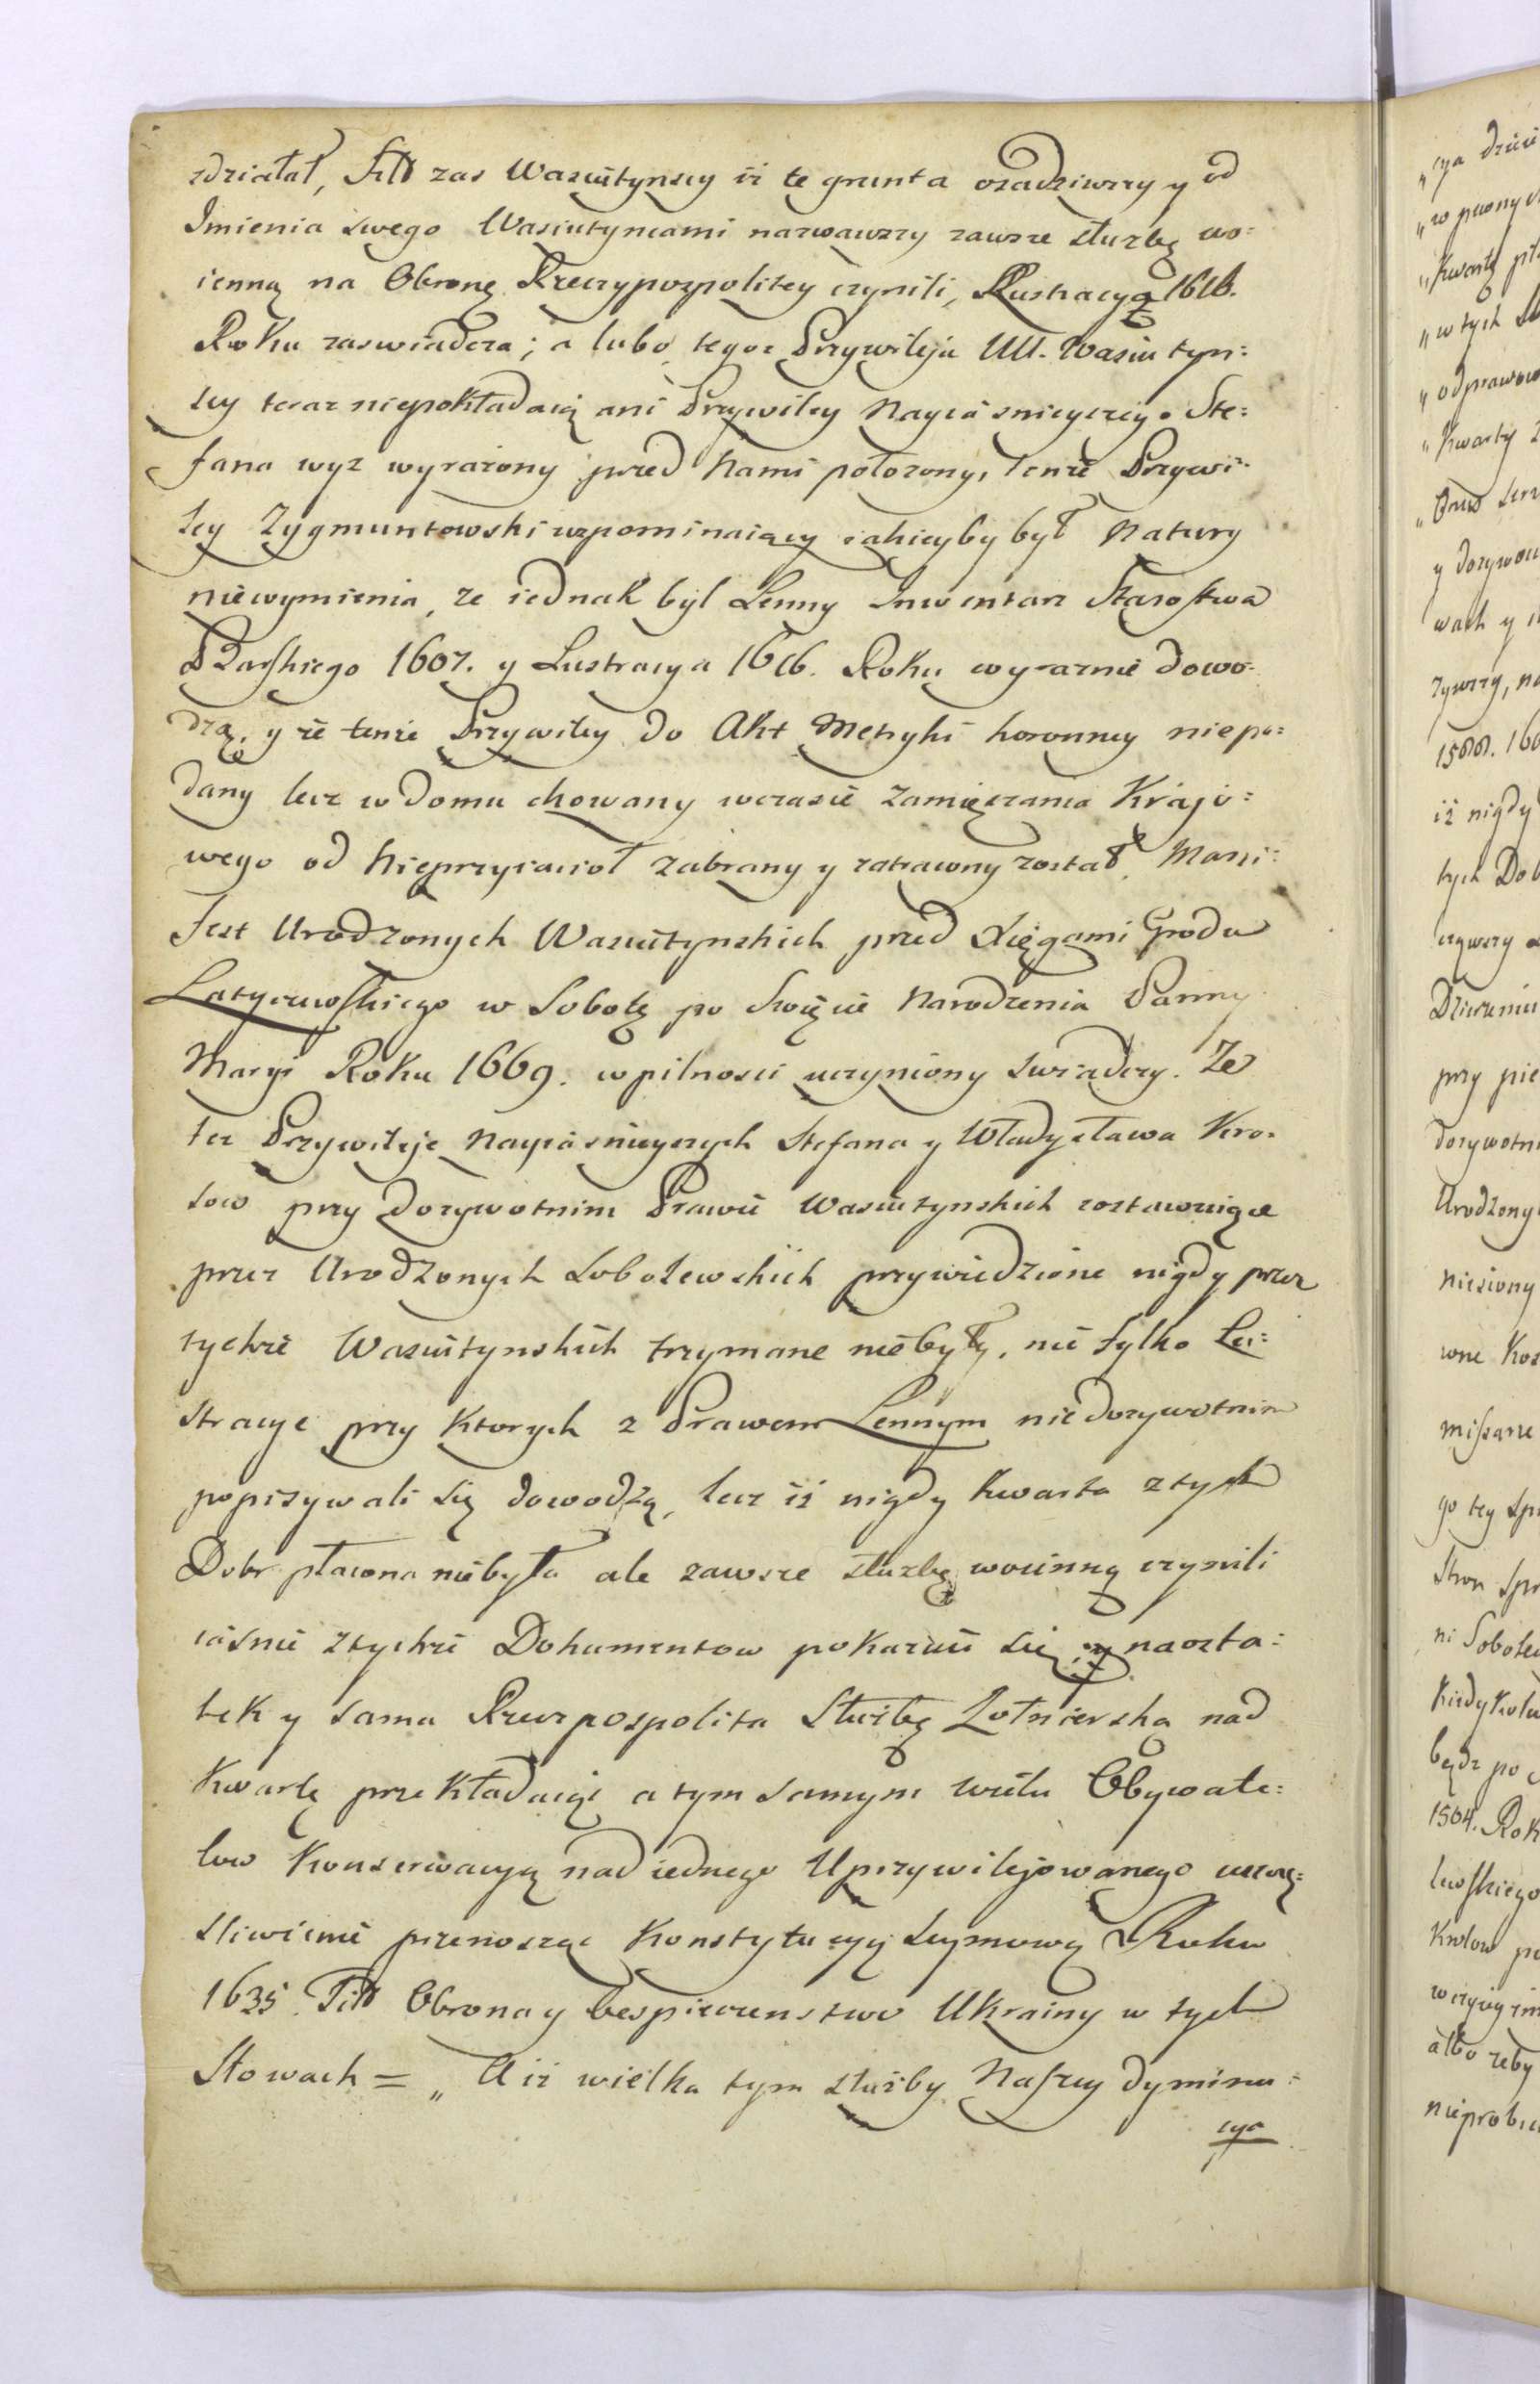 zdziałał, zas Wasiutynscy iż te grunta osadziwszy y od
Imienia swego Wasiutyncami nazwawszy zawsze służbę wo:
ienną na Obronę Rzeczypospolitey czynili, Lustracya 1616.
Roku zaswiadcza; a lubo tegoż Przywileju UU. Wasiutyn:
scy teraz niepokładaią ani Przywiley Nayiasnieyszego Ste:
fana wyz wyrażony przed Nami położony, tenże Przywi:
ley Zygmuntowski wspominaiący iakieyby był Natury
niewymienia, ze iednak był Lenny Inwentarz Starostwa
Barskiego 1607. y Lustracya 1616. Roku wyraznie dowo:
dzą, y że tenże Przywiley do Akt Metryki koronney niepo:
dany lecz w domu chowany w czasie Zamięszania Krajo:
wego od Nieprzyiacioł zabrany y zatracony został, Mani:
fest Urodzonych Wasiutynskich przed Xięgami Grodu
Latyczewskiego w Sobotę po Swięcie Narodzenia Panny
Maryi Roku 1669. w pilnosci uczyniony swiadczy. Ze
tez Przywileje Nayiasnieyszych Stefana y Władysława Kro:
low przy Dozywotnim Prawie Wasiutynskich zostawuiące
przez Urodzonych Sobolewskich przywiedzione nigdy przez
tychże Wasiutynskich trzymane niebyły, nie tylko Lu:
stracye przy Ktorych z Prawem Lennym nie dozywotnim
popisywali się dowodzą, lecz iż nigdy Kwarta z tych
Dobr płacona niebyła ale zawsze służbę woienną czynili
iasnie z tychże Dokumentow pokazuie się, y naosta:
tek y sama Rzeczpospolita Służbę Żołnierską nad
Kwartę przekładaiąc a tym samym wielu Obywate:
low Konserwacyą nad iednego Uprzywilejowanego uszczę:
sliwienie przenosząc Konstytucyą Seymową Roku
1635 Tit Obrona y bespieczenstwo Ukrainy w tych
Słowach = „ A iż wielka tym służby Naszey dyminu:
cya